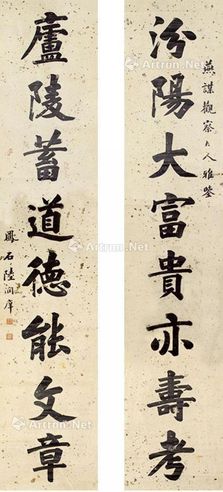 燕謀觀察大人雅鑒
汾陽大富貴亦壽考
廬陵蓄道德能文章
鳳石陸潤庠
Artron.Net
Artron.Net